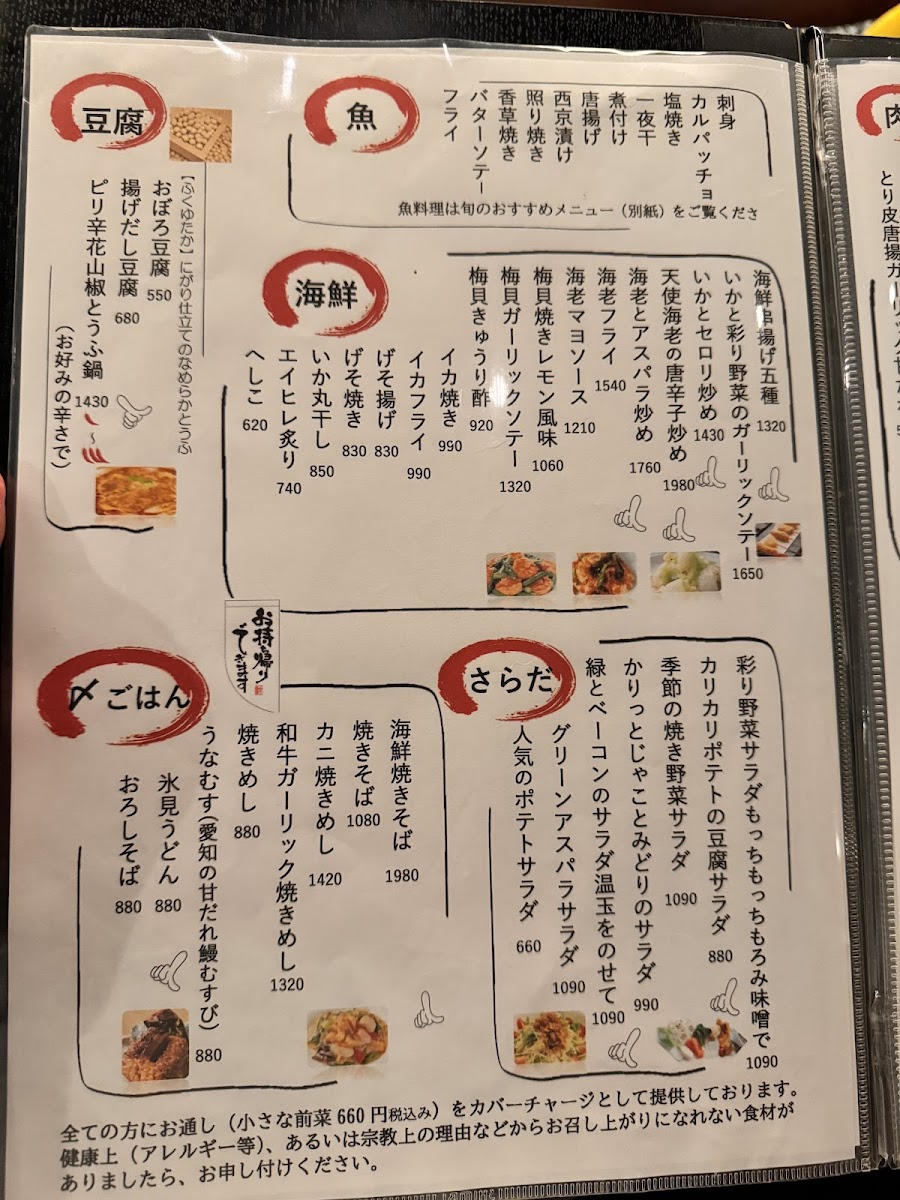 魚
刺身
カルパッチョ
塩焼き
一夜干
煮付け
唐揚げ
西京漬け
照り焼き
香草焼き
バターソテー
フライ
魚料理は旬のおすすめメニュー（別紙）をご覧くださ
豆腐
【ふくゆたか】にがり仕立てのなめらかとうふ
おぼろ豆腐 550
揚げだし豆腐 680
ピリ辛花山椒とうふ鍋 1430
～
（お好みの辛さで）
海鮮
海鮮串揚げ五種 1320
いかと彩り野菜のガーリックソテー 1650
いかとセロリ炒め 1430
天使海老の唐辛子炒め 1980
海老とアスパラ炒め 1760
海老フライ 1540
海老マヨソース 1210
梅貝焼きレモン風味 1060
梅貝ガーリックソテー 1320
梅貝きゅうり酢 920
イカ焼き 990
イカフライ 990
げそ揚げ 830
げそ焼き 830
いか丸干し 850
エイヒレ炙り 740
へしこ 620
お持ち帰り
できます
さらだ
彩り野菜サラダもっちもっちもろみ味噌で 1090
カリカリポテトの豆腐サラダ 880
季節の焼き野菜サラダ 1090
かりっとじゃことみどりのサラダ 990
緑とベーコンのサラダ温玉をのせて 1090
グリーンアスパラサラダ 1090
人気のポテトサラダ 660
〆ごはん
海鮮焼きそば 1980
焼きそば 1080
カニ焼きめし 1420
和牛ガーリック焼きめし 1320
焼きめし 880
うなむす(愛知の甘だれ鰻むすび) 880
氷見うどん 880
おろしそば 880
全ての方にお通し（小さな前菜 660 円税込み）をカバーチャージとして提供しております。
健康上（アレルギー等)、あるいは宗教上の理由などからお召し上がりになれない食材が
ありましたら、お申し付けください。
肉
とり皮唐揚ガーリック